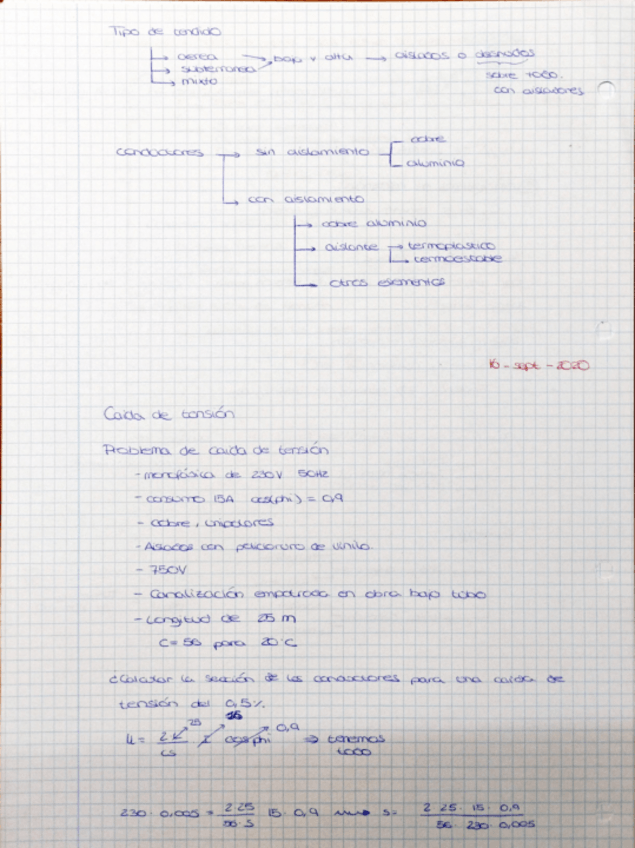 Tipo de tendido
→ aerea → baja y alta → aislados o desnudos
→ subterranea
→ mixto
sobre todo
con aisladores
conductores → sin aislamiento
cobre
aluminio
→ con aislamiento
→ cobre aluminio
→ aislante → termoplastico
→ termoestable
→ otros elementos
16 - sept - 2020
Caida de tensión
Problema de caida de tensión
- monofásica de 230V 50Hz
- consumo 15A cos(phi) = 0,9
- cobre, unipolares
- Aislados con policloruro de vinilo
- 750V
- Canalización empotrada en obra bajo tubo
- Longitud de 25 m
C = 56 para 20°C
¿Calcular la sección de los conductores para una caida de
tensión del 0,5%
25 15 0,9
u = 2L/cs I cos phi ⇒ tenemos
todo
230 · 0,005 = 2·25/56·S 15 · 0,9 → S = 2·25·15·0,9/56·230·0,005